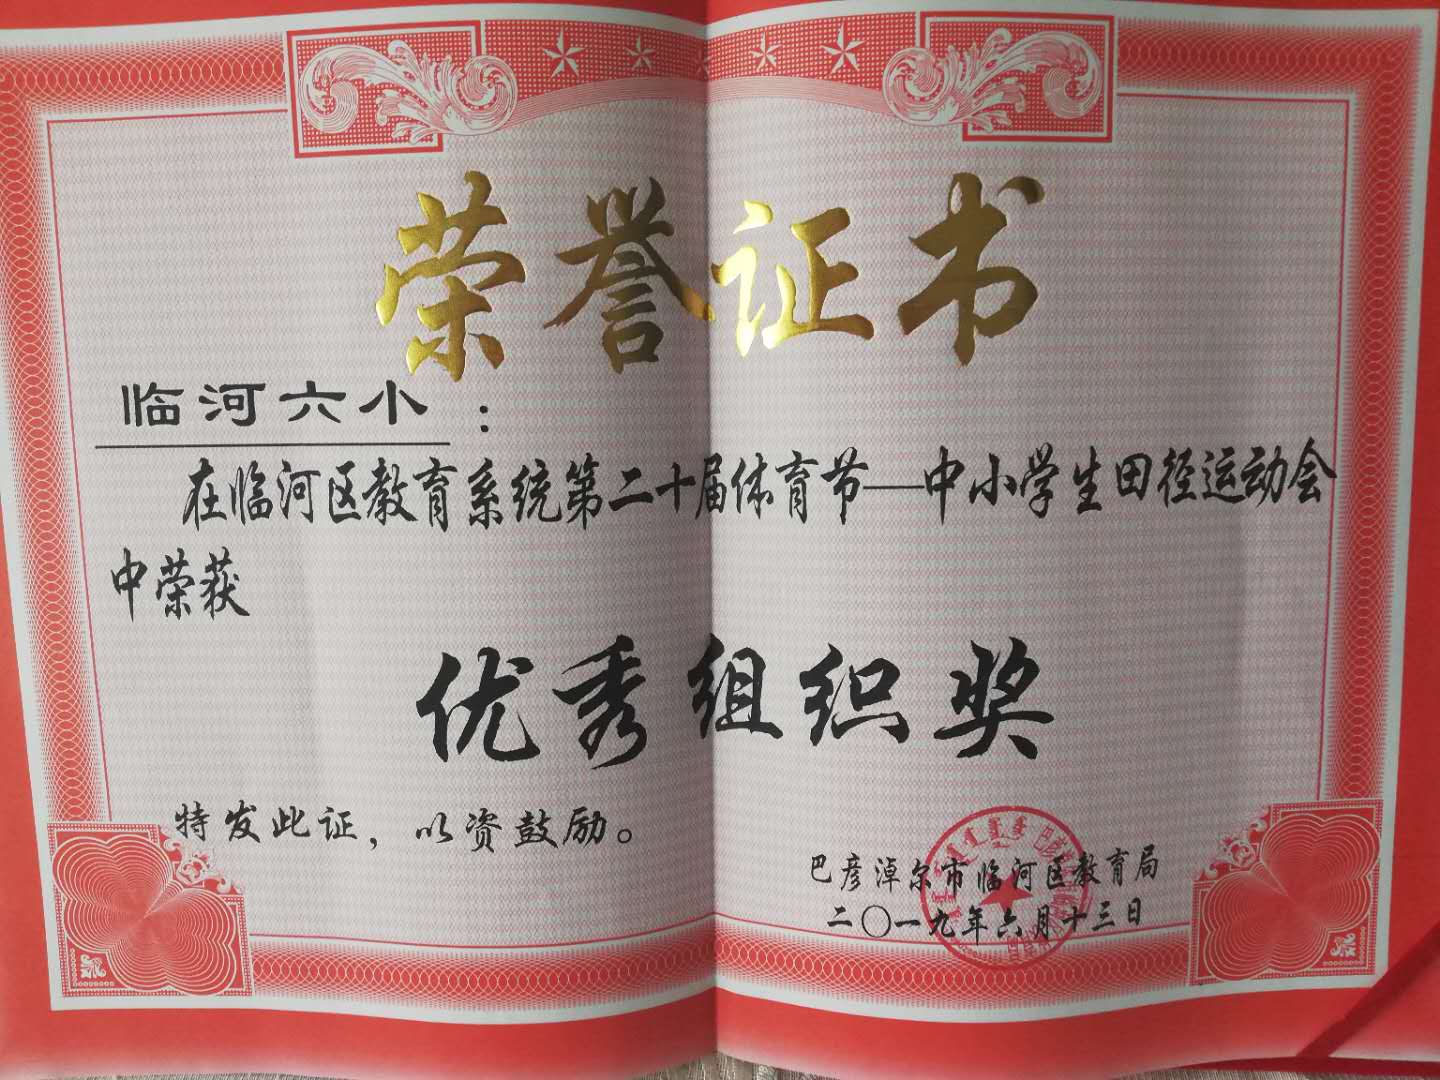 荣誉证书
临河六小：
在临河区教育系统第二十届体育节——中小学生田径运动会
中荣获
优秀组织奖
特发此证，以资鼓励。
巴彦淖尔市临河区教育局
二〇一九年六月十三日